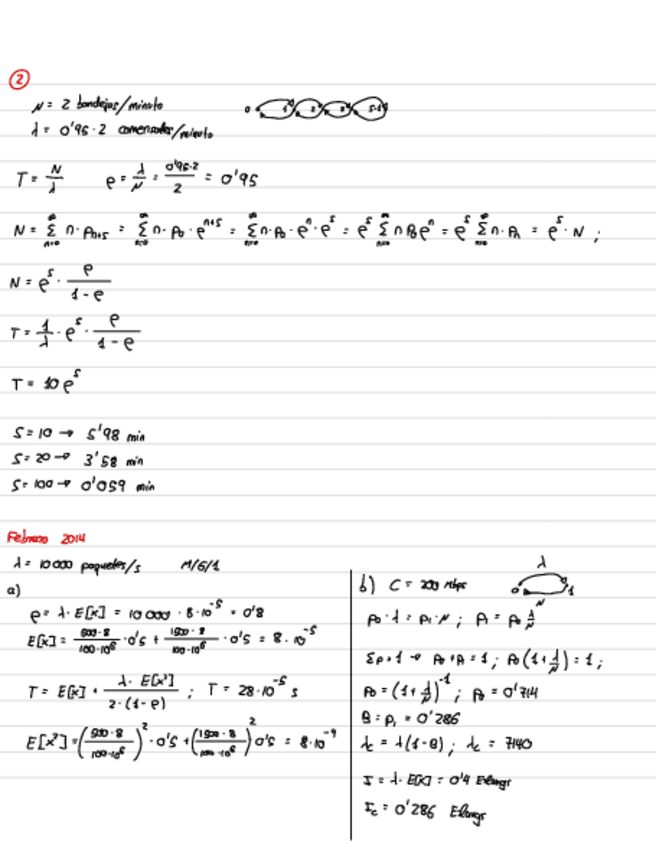 2
μ = 2 bandejas/minuto
λ = 0'95·2 comensales/minuto
0 1 2 3 S-1
T = N/λ   ρ = λ/μ = 0'95·2/2 = 0'95
N = Σ_{n=0}^∞ n·P_{n+s} = Σ_{n=0}^∞ n·P_0·ρ^{n+s} = Σ_{n=0}^∞ n·P_0·ρ^n·ρ^s = ρ^s Σ_{n=0}^∞ n P_0 ρ^n = ρ^s Σ_{n=0}^∞ n·P_n = ρ^s·N ;
N = ρ^s · ρ/(1-ρ)
T = 1/λ · ρ^s · ρ/(1-ρ)
T = 10 ρ^s
S = 10 → 5'98 min
S = 20 → 3'58 min
S = 100 → 0'059 min
Febrero 2014
λ = 10000 paquetes/s   M/G/1
a)
ρ = λ·E[x] = 10000 · 8·10^-5 = 0'8
E[x] = 500·8/100·10^6 · 0'5 + 1500·8/100·10^6 · 0'5 = 8·10^-5
T = E[x] + λ·E[x²]/2·(1-ρ) ; T = 28·10^-5 s
E[x²] = (500·8/100·10^6)² · 0'5 + (1500·8/100·10^6)² 0'5 = 8·10^-9
b) C = 200 Mbps
λ
0 1
μ
P_0·λ = P_1·μ ; P_1 = P_0 λ/μ
Σp = 1 → P_0 + P_1 = 1 ; P_0(1+λ/μ) = 1 ;
P_0 = (1+λ/μ)^-1 ; P_0 = 0'714
B = P_1 = 0'286
λ_c = λ(1-B) ; λ_c = 7140
I = λ·E[x] = 0'4 Erlangs
I_c = 0'286 Erlangs